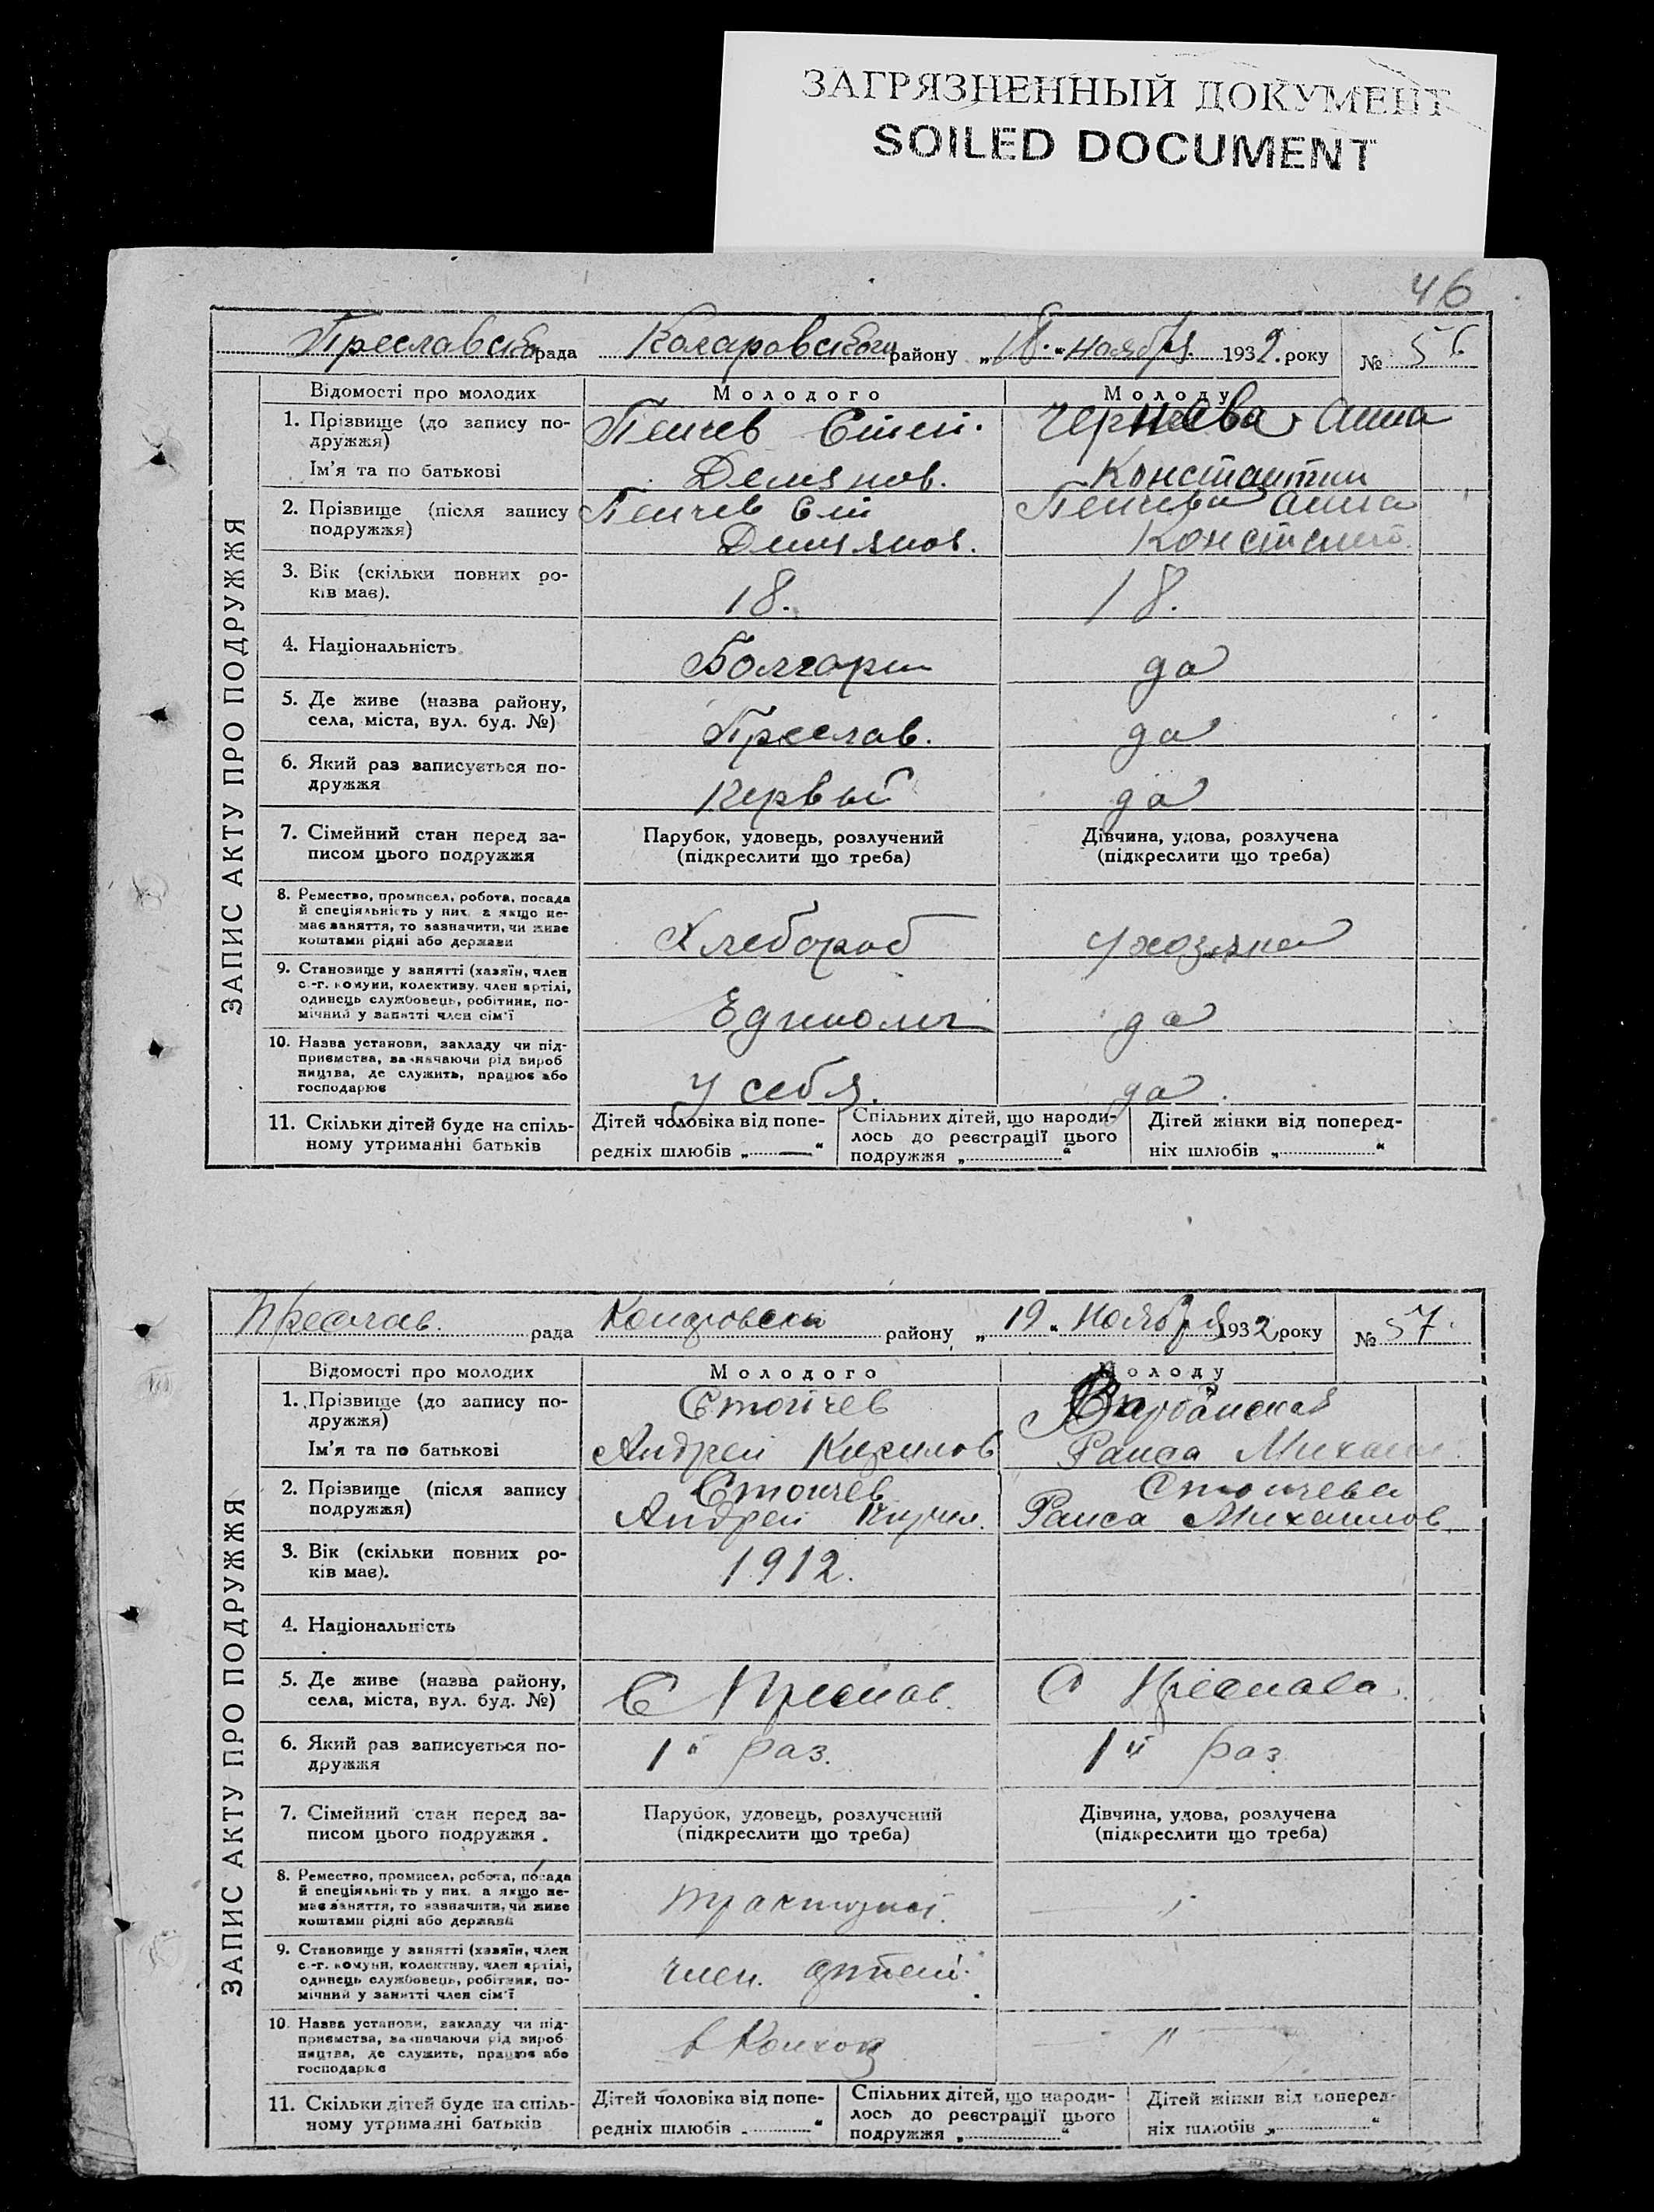 ЗАГРЯЗНЕННЫЙ ДОКУМЕНТ
SOILED DOCUMENT
46
Преславско рада Коларовского району „18." ноября 1932. року № 56
ЗАПИС АКТУ ПРО ПОДРУЖЖЯ
Відомості про молодих Молодого Молоду
1. Прізвище (до запису по- Пенчев Чернева Анна
дружжя)
Ім'я та по батькові Демянов. Константин
2. Прізвище (після запису Пенчев Пенчева Анна
подружжя) Демянов. Констант.
3. Вік (скільки повних ро-
ків має). 18. 18.
4. Національність Болгарин да
5. Де живе (назва району,
села, міста, вул. буд. №) Преслав. да
6. Який раз записується по-
дружжя Первый да
7. Сімейний стан перед за- Парубок, удовець, розлучений Дівчина, удова, розлучена
писом цього подружжя (підкреслити що треба) (підкреслити що треба)
8. Ремество, промисел, робота, посада
й спеціяльність у них, а якщо не-
має заняття, то зазначити, чи живе Хлебороб
коштами рідні або держави
9. Становище у занятті (хазяїн, член
с.-г. комуни, колективу, член артілі,
одинець службовець, робітник, по- да
мічний у занятті член сім'ї
10. Назва установи, закладу чи під-
приємства, зазначаючи рід вироб
ництва, де служить, працює або
господарює у себя. да.
11. Скільки дітей буде на спіль- Дітей чоловіка від попе- Спільних дітей, що народи- Дітей жінки від поперед-
ному утриманні батьків редніх шлюбів „—" лось до реєстрації цього ніх шлюбів „ "
подружжя „ "
Преслав. рада району „19„ Ноября 1932 року № 57.
ЗАПИС АКТУ ПРО ПОДРУЖЖЯ
Відомості про молодих Молодого Молоду
1. Прізвище (до запису по- Стоичев
дружжя)
Ім'я та по батькові Андрей Кирилов Раиса Михаил
2. Прізвище (після запису Стоичев Стоичева
подружжя) Андрей Кирил. Раиса Михаилов
3. Вік (скільки повних ро-
ків має). 1912.
4. Національність
5. Де живе (назва району,
села, міста, вул. буд. №) С Преслав. С Преслава.
6. Який раз записується по- 1й раз. 1й раз
дружжя
7. Сімейний стан перед за- Парубок, удовець, розлучений Дівчина, удова, розлучена
писом цього подружжя. (підкреслити що треба) (підкреслити що треба)
8. Ремество, промисел, робота, посада
й спеціяльність у них, а якщо не-
має заняття, то зазначити, чи живе
коштами рідні або держави
9. Становище у занятті (хазяїн, член
с.-г. комуни, колективу, член артілі, член. артели.
одинець службовець, робітник, по-
мічний у занятті член сім'ї
10. Назва установи, закладу чи під-
приємства, зазначаючи рід вироб в Колхоз "
ництва, де служить, працює або
господарює
11. Скільки дітей буде на спіль- Дітей чоловіка від попе- Спільних дітей, що народи- Дітей жінки від поперед-
ному утриманні батьків редніх шлюбів „ " лось до реєстрації цього ніх шлюбів „ "
подружжя „ "